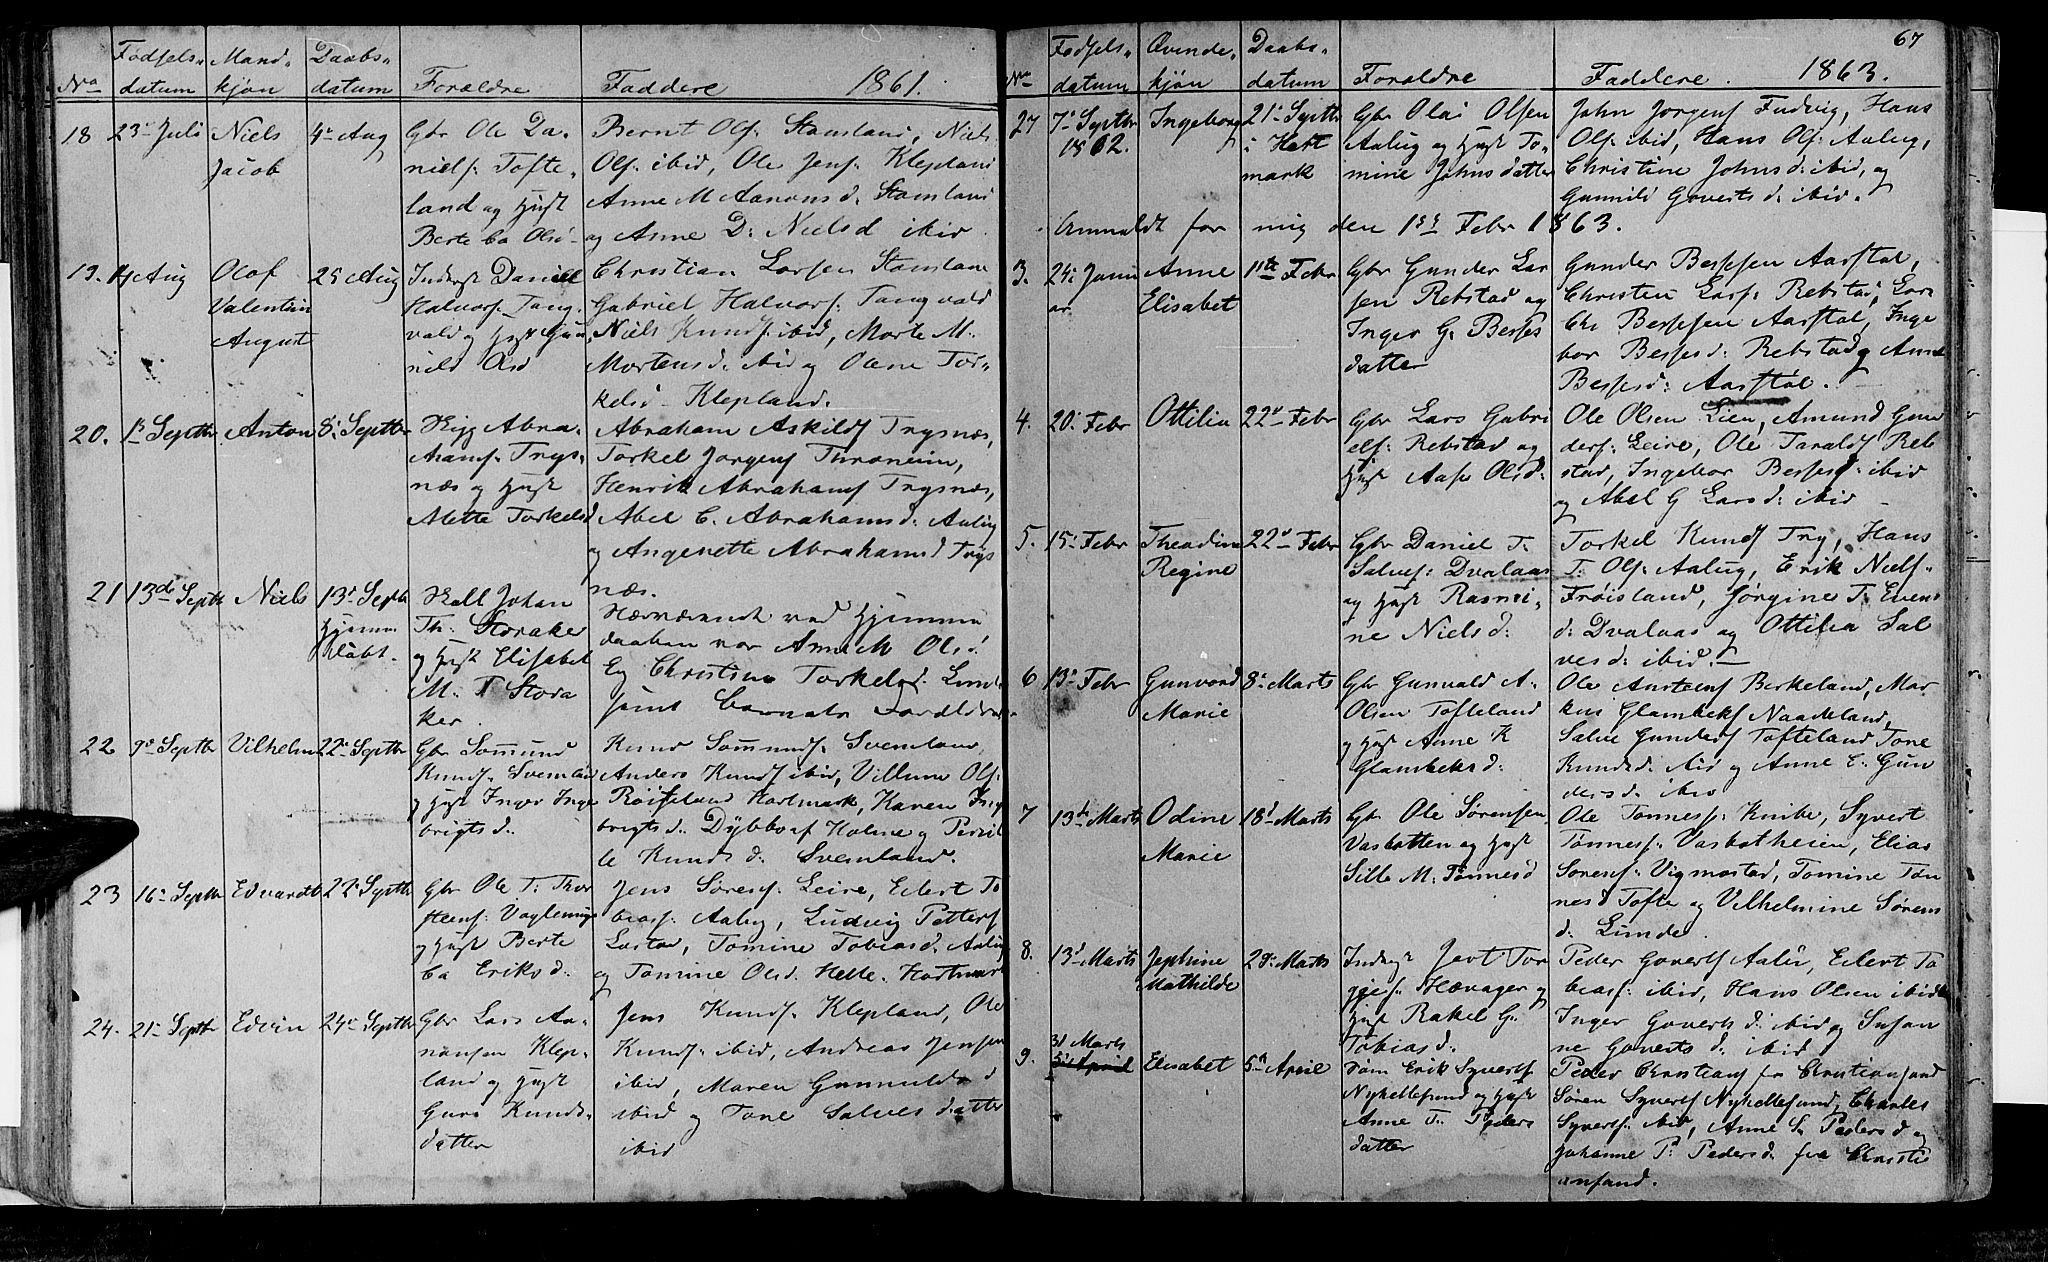 No Fødsels- datum Mand- kjøn Daabs- datum Forældre Faddere 1861.
18 23de Juli Niels Jacob 4de Aug
Gbr Ole Da-
niels: Tofte-
land og Hust
Berte Ca Olsd
Bernt Ols: Stamland, Niels
Ols: ibid, Ole Jens: Klepland
Anne M Aanonsd. Stamland
og Anne D: Nielsd ibid.
19. 14 Aug Olaf Valentin August 25 Aug
Inderst Daniel
Halvors: Tang-
vald og Hust Gun
nild Asd
Christian Larsen Stamland
Gabriel Halvors: Tangvald
Niels Knuds: ibid, Marte M.
Mortensd: ibid og Olene Tor-
kelsd Klepland.
20. 1st Septbr Anton 8de Septbr
Abra-
hams: Trys-
næs og Hust
Mette Torkelsd
Abraham Askilds Trysnæs,
Torkel Jørgens Throneim,
Henrik Abrahams Trysnæs,
Abel C. Abrahamsd: Aalug
og Angenette Abrahamsd Trys
næs.
21 13de Septbr Niels 13de Septbr Hjemme døbt.
Johan
Th: Storaker
og Hust Elisabet
M. T Stora
ker.
Nærværende ved Hjemme
daaben var Anne M Olsd
Christine Torkelsd. Lunde
samt Barnets Forældre
22 9de Septbr Vilhelm 22de Septbr
Gbr Sømund
Knuds: Svenland
og Hust Inger Inge
brigtsd.
Knud Sømunds: Svenland,
Anders Knuds ibid, Villum Ols:
Røiseland Hartmark, Karen Inge
brigtsd. Dybbo af Holme og Pernil
le Knudsd. Svenland.
23 16de Septbr Edvardt 22de Septbr
Gbr Ole T. Thor
stens: Voglenings
og Hust Berte
Ca Eriksd.
Jens Sørens: Leire, Edert To
beas: Aalug, Ludvig Petters
Lastad, Tomine Tobiasd. Aalug
og Tomine Olsd. Helle. Hartmark
24. 21de Septbr Edvin 24de Septbr
Gbr Lars Aa-
nonsen Klep-
land og Hust
Guro Knuds-
datter
Jens Knuds: Klepland, Ole
Knuds: ibid, Andreas Jensen
ibid, Maren Gunnulds d
ibid og Tone Salvesdatter
ibid
67
No Fødsels- datum Qvinde- kjøn Daabs- datum Forældre Faddere. 1863.
27 7de Septbr 1862. Ingeborg 21de Septbr i Hart mark
Gbr Olai Olsen
Aalug og Hust To-
mine Johnsdatter
John Jørgens Fudvig, Hans
Ols: ibid, Hans Ols: Aalug,
Christine Johnsd: ibid, og
Gunnild Govertsd: ibid.
Anmeldt for mig den 1ste Febr 1863.
3. 24de Janu ar. Anne Elisabet 1ste Febr
Gbr Gunder Lar
sen Rebstad og
Inger G. Berges
datter
Gunder Bergsen Aarstøl,
Christen Lars: Rebstad, Lars
Chr Bergsen Aarstøl, Inge
bor Bergesd: Rebstad og Anne
Bergesd: Aarstøl.
4. 20de Febr Ottilia 22de Febr
Gbr Lars Gabri
els: Rebstad og
Hust Aase Olsd:
Ole Olsen Lien, Amund Gun
ders: Leire, Ole Taralds Reb
stad, Ingebor Bergesd: ibid
og Abel G Larsd: ibid
5. 15de Febr Theadine Regine 22de Febr
Gbr Daniel T.
Salves: Dvalaas
og Hust Rasmi-
ne Nielsd:
Torkel Knuds Try, Hans
T. Ols: Aalug, Erik Niels
Frøisland, Jørgine T. Evens
d: Dvalaas og Ottilia Sal
vesd: ibid.
6 13de Febr Gunvord Marie 8de Marts
Gbr Gunvald A.
Olsen Tofteland
og Hust Anne K
Glambeksd:
Ole Anstens Berkeland, Mar
kus Glambeks Naadeland,
Salve Gunders Tofteland, Tone
Knudsd: ibid og Anne E. Gun
dersd: ibid
7 13de Marts Odine Marie 18de Marts
Gbr Ole Sørensen
Vasbotten og Hust
Sille M. Tønnesd
Ole Tønness: Knibe, Syvert
Tønness: Vasbotheien, Elias
Sørens: Vigmostad, Tomine Tøn
nesd Tofte og Vilhelmine Sørens
d. Lunde.
8. 13de Marts Jephine Mathilde 29de Marts
Inderst Javt Tor
gies: Hævager og
Hust Rakel G.
Tobiasd.
Peder Goverts Aalug, Edert To
beas: ibid, Hans Olsen ibid
Inger Govertsd: ibid og Susan
ne Govertsd: ibid
9. 31 Marts Elisabet 5te April
Erik Syverts
Ny Hellesund og Hust
Anne T. Peders
datter
Peder Christians fra Christiansand
Søren Syverts Ny Hellesund, Charles
Syverts: ibid, Anne S. Pedersd og
Johanne P: Pedersd. fra Christi
ansand.